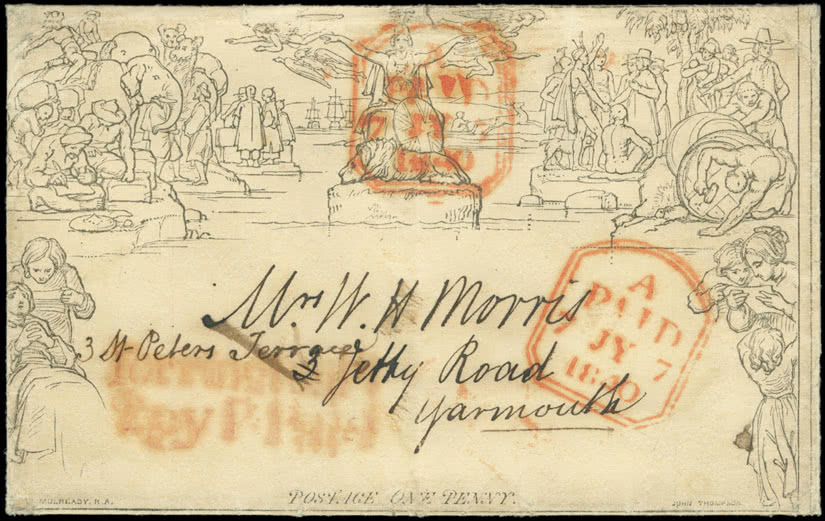 PAID
7 JY 7
1840
Mrs W. H Morris
3 St Peters Terrace
Jetty Road
Yarmouth
A
PAID
JY 7
1840
Py Paid
POSTAGE ONE PENNY.
MULREADY. R.A.
JOHN THOMPSON